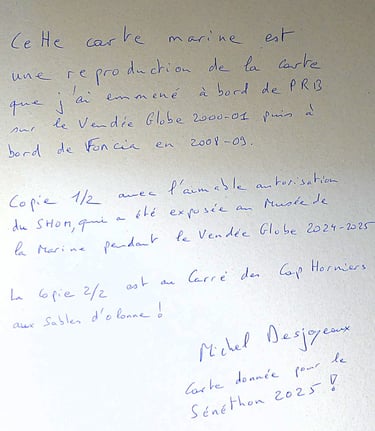 Cette carte marine est
une reproduction de la carte
que j'ai emmené à bord de PRB
sur le Vendée Globe 2000-01 puis à
bord de Foncia en 2008-09.
Copie 1/2 avec l'aimable autorisation
du SHOM, qui a été exposée au Musée de
la Marine pendant le Vendée Globe 2024-2025
La Copie 2/2 est au Carré des Cap Horniers
aux Sables d'olonne !
Michel Desjoyeaux
Carte donnée pour le
Sénéthon 2025 !